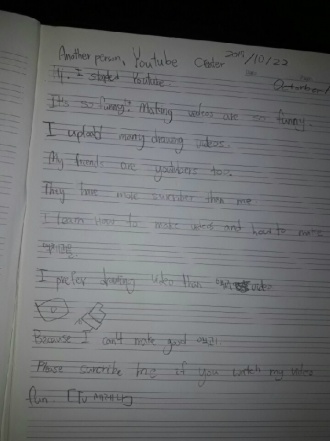 Another person, Youtube Center 2018/10/22
Hi. I started Youtube.
It's so funny! Making videos are so funny.
I upload many drawing videos.
My friends are youtubers too.
They have more suncriber than me.
I learn how to make videos and how to make
I prefer drawing video than video
Because I can't make good
Please suncribe here if you watch my video
fun.